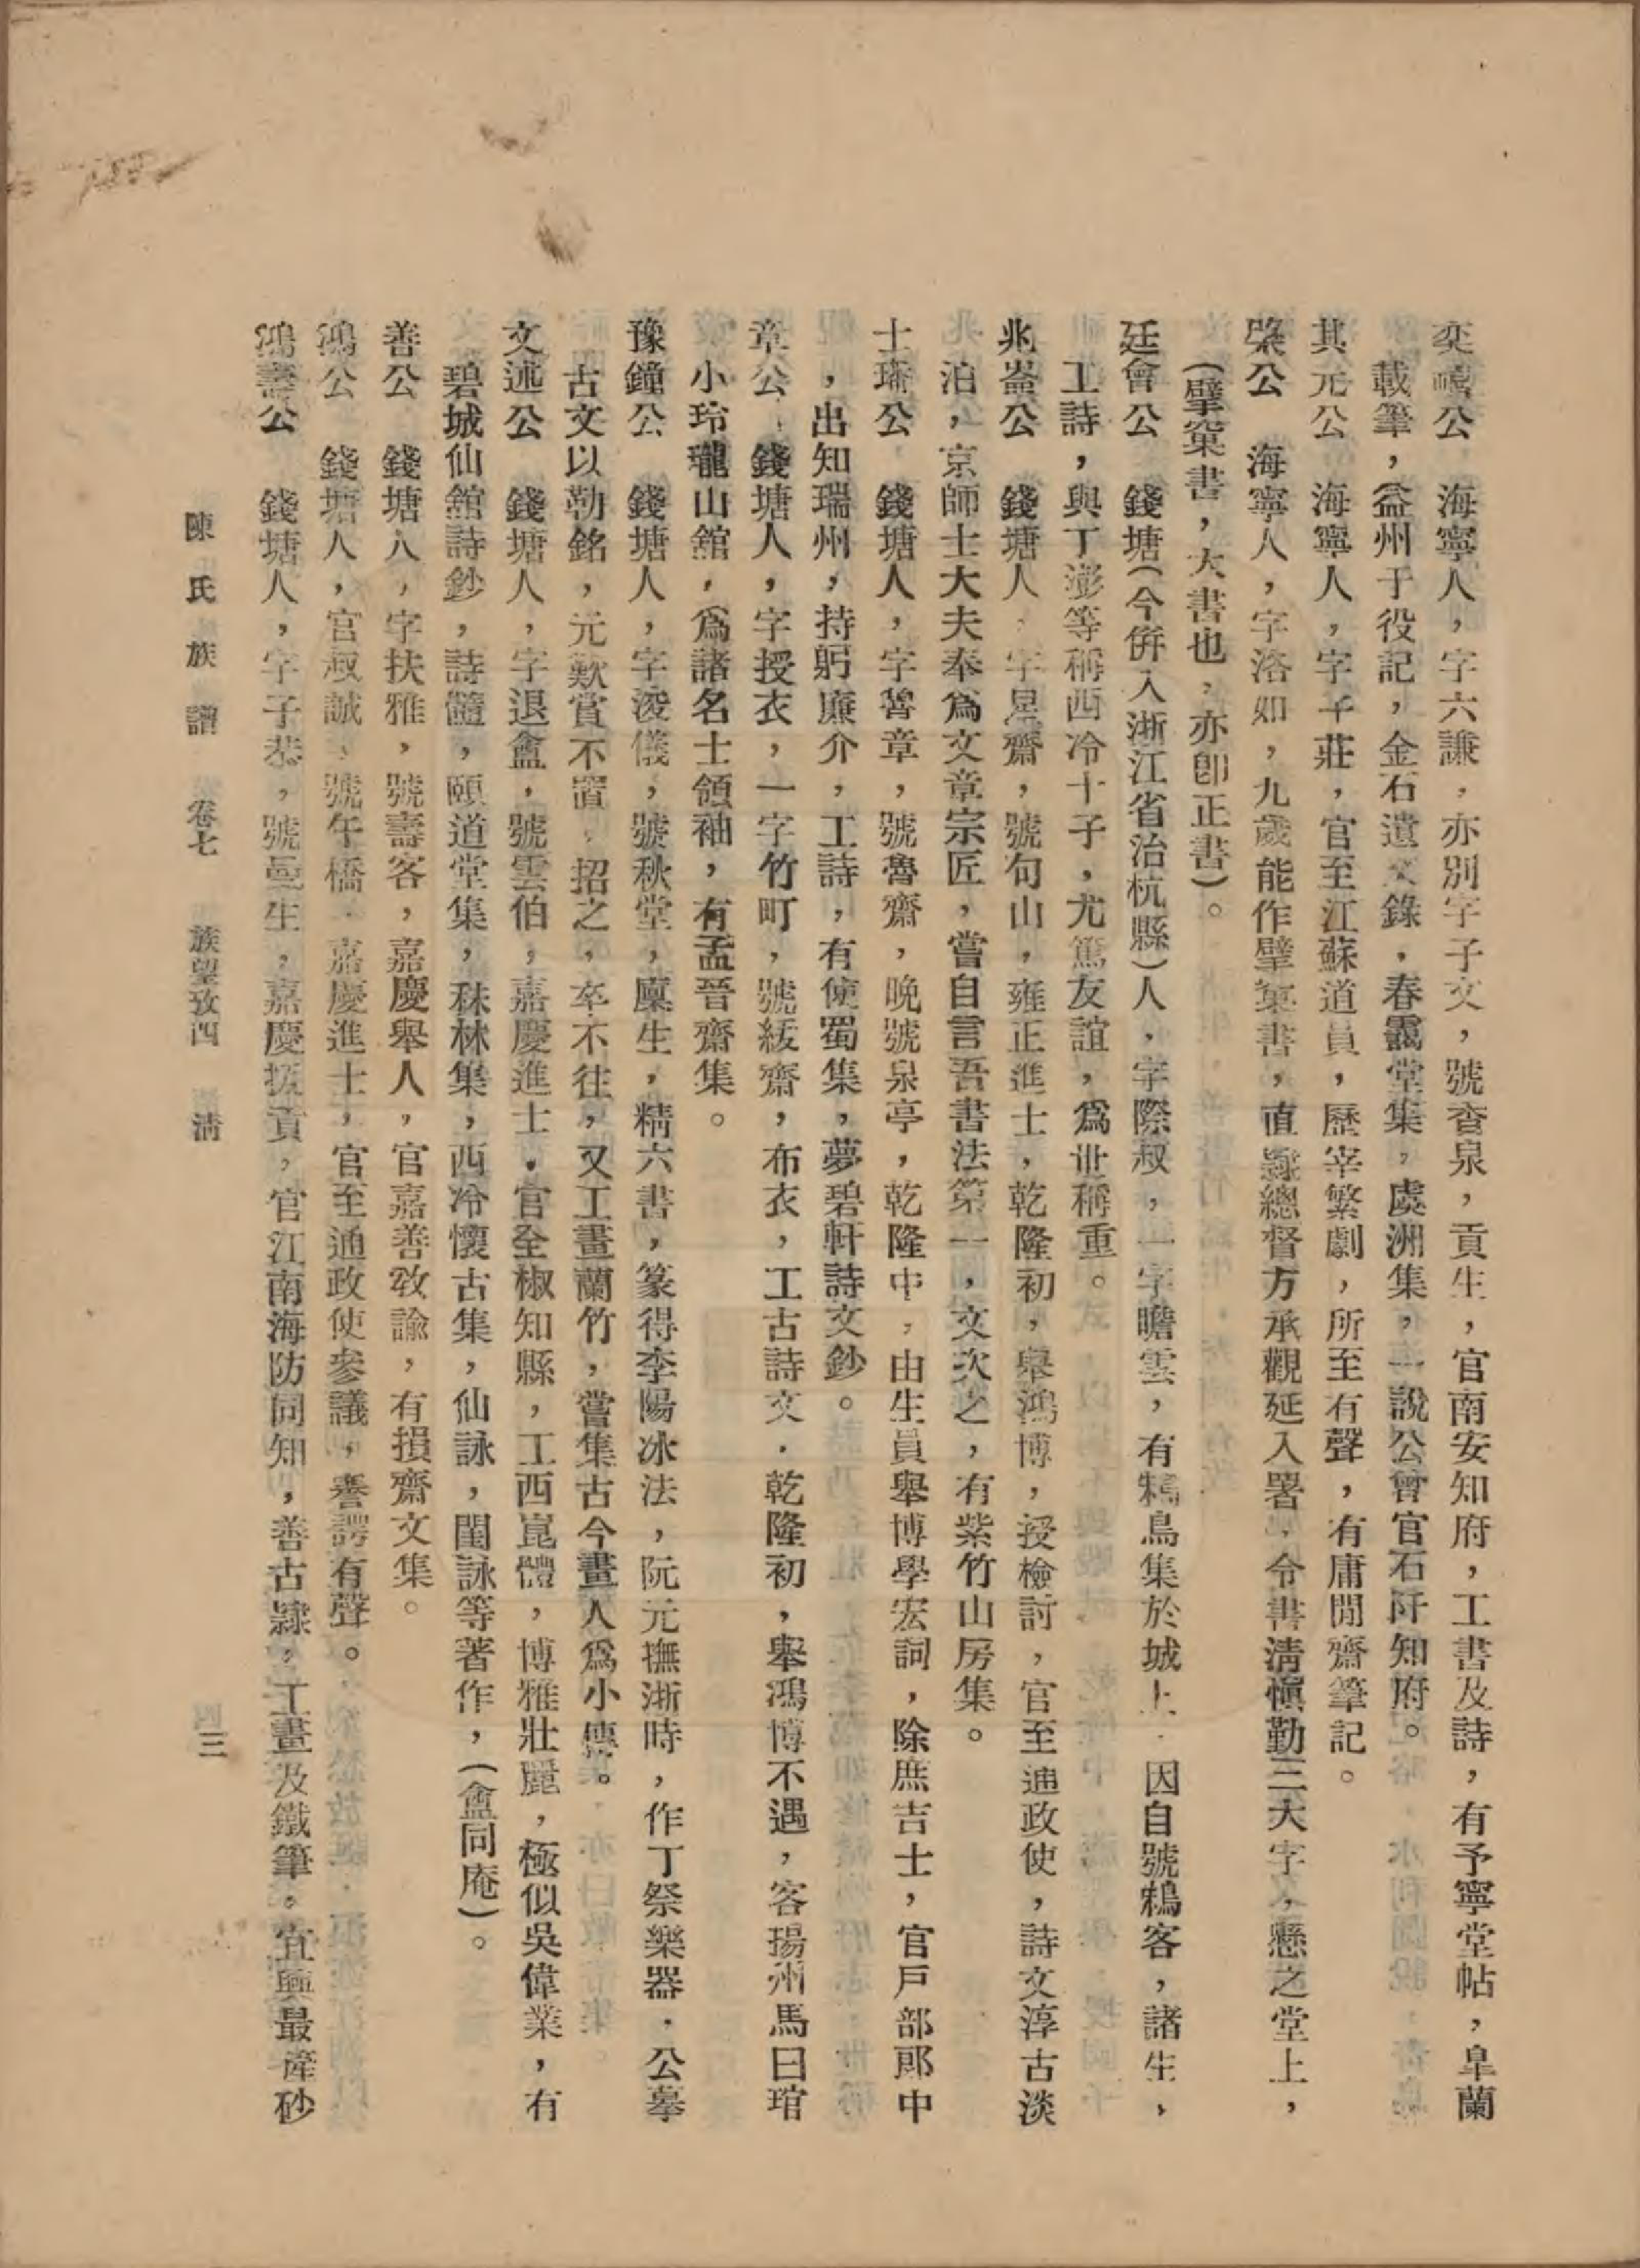 奕禧公　海寧人，字六謙，亦別字子文，號香泉，貢生，官南安知府，工書及詩，有予寧堂帖，皐蘭
載筆，益州于役記，金石遺文錄，春靄堂集，虞洲集，一說公曾官石阡知府。
其元公　海寧人，字子莊，官至江蘇道員，歷宰繁劇，所至有聲，有庸閒齋筆記。
棨公　海寧人，字洛如，九歲能作擘窠書，直隸總督方承觀延入署，令書淸愼勤三大字，懸之堂上，
（擘窠書，大書也，亦卽正書）。
廷會公　錢塘（今併入浙江省治杭縣）人，字際叔，一字瞻雲，有鶇鳥集於城上．因自號鶇客，諸生，
工詩，與丁澎等稱西冷十子，尤篤友誼，爲世稱重。
兆崙公　錢塘人，字星齋，號句山，雍正進士，乾隆初，舉鴻博，授檢討，官至通政使，詩文淳古淡
泊，京師士大夫奉爲文章宗匠，嘗自言吾書法第一，文次之，有紫竹山房集。
士璠公　錢塘人，字魯章，號魯齋，晚號泉亭，乾隆中，由生員舉博學宏詞，除庶吉士，官戶部郎中
，出知瑞州，持躬廉介，工詩，有使蜀集，夢碧軒詩文鈔。
章公　錢塘人，字授衣，一字竹町，號紱齋，布衣，工古詩文．乾隆初，舉鴻博不遇，客揚州馬曰琯
小玲瓏山舘，爲諸名士領袖，有孟晉齋集。
豫鐘公　錢塘人，字浚儀，號秋堂，廩生，精六書，篆得李陽冰法，阮元撫浙時，作丁祭樂器．公摹
古文以勒銘，元歎賞不置，招之，卒不往，又工畫蘭竹，嘗集古今畫人爲小傳。
文述公　錢塘人，字退盦，號雲伯，嘉慶進士．官全椒知縣，工西崑體，博雅壯麗，極似吳偉業，有
碧城仙舘詩鈔，詩髓，頤道堂集，秣林集，西冷懷古集，仙詠，閨詠等著作，（盦同庵）。
善公　錢塘人，字扶雅，號壽客，嘉慶舉人，官嘉善敎諭，有損齋文集。
鴻公　錢塘人，官叔誠，號午橋．嘉慶進士，官至通政使參議，謇諤有聲。
鴻壽公　錢塘人，字子恭，號曼生，嘉慶拔貢，官江南海防同知，善古隸，工畫及鐵筆。宜興最謹砂
陳氏族譜　卷七　族望攷四　淸
三